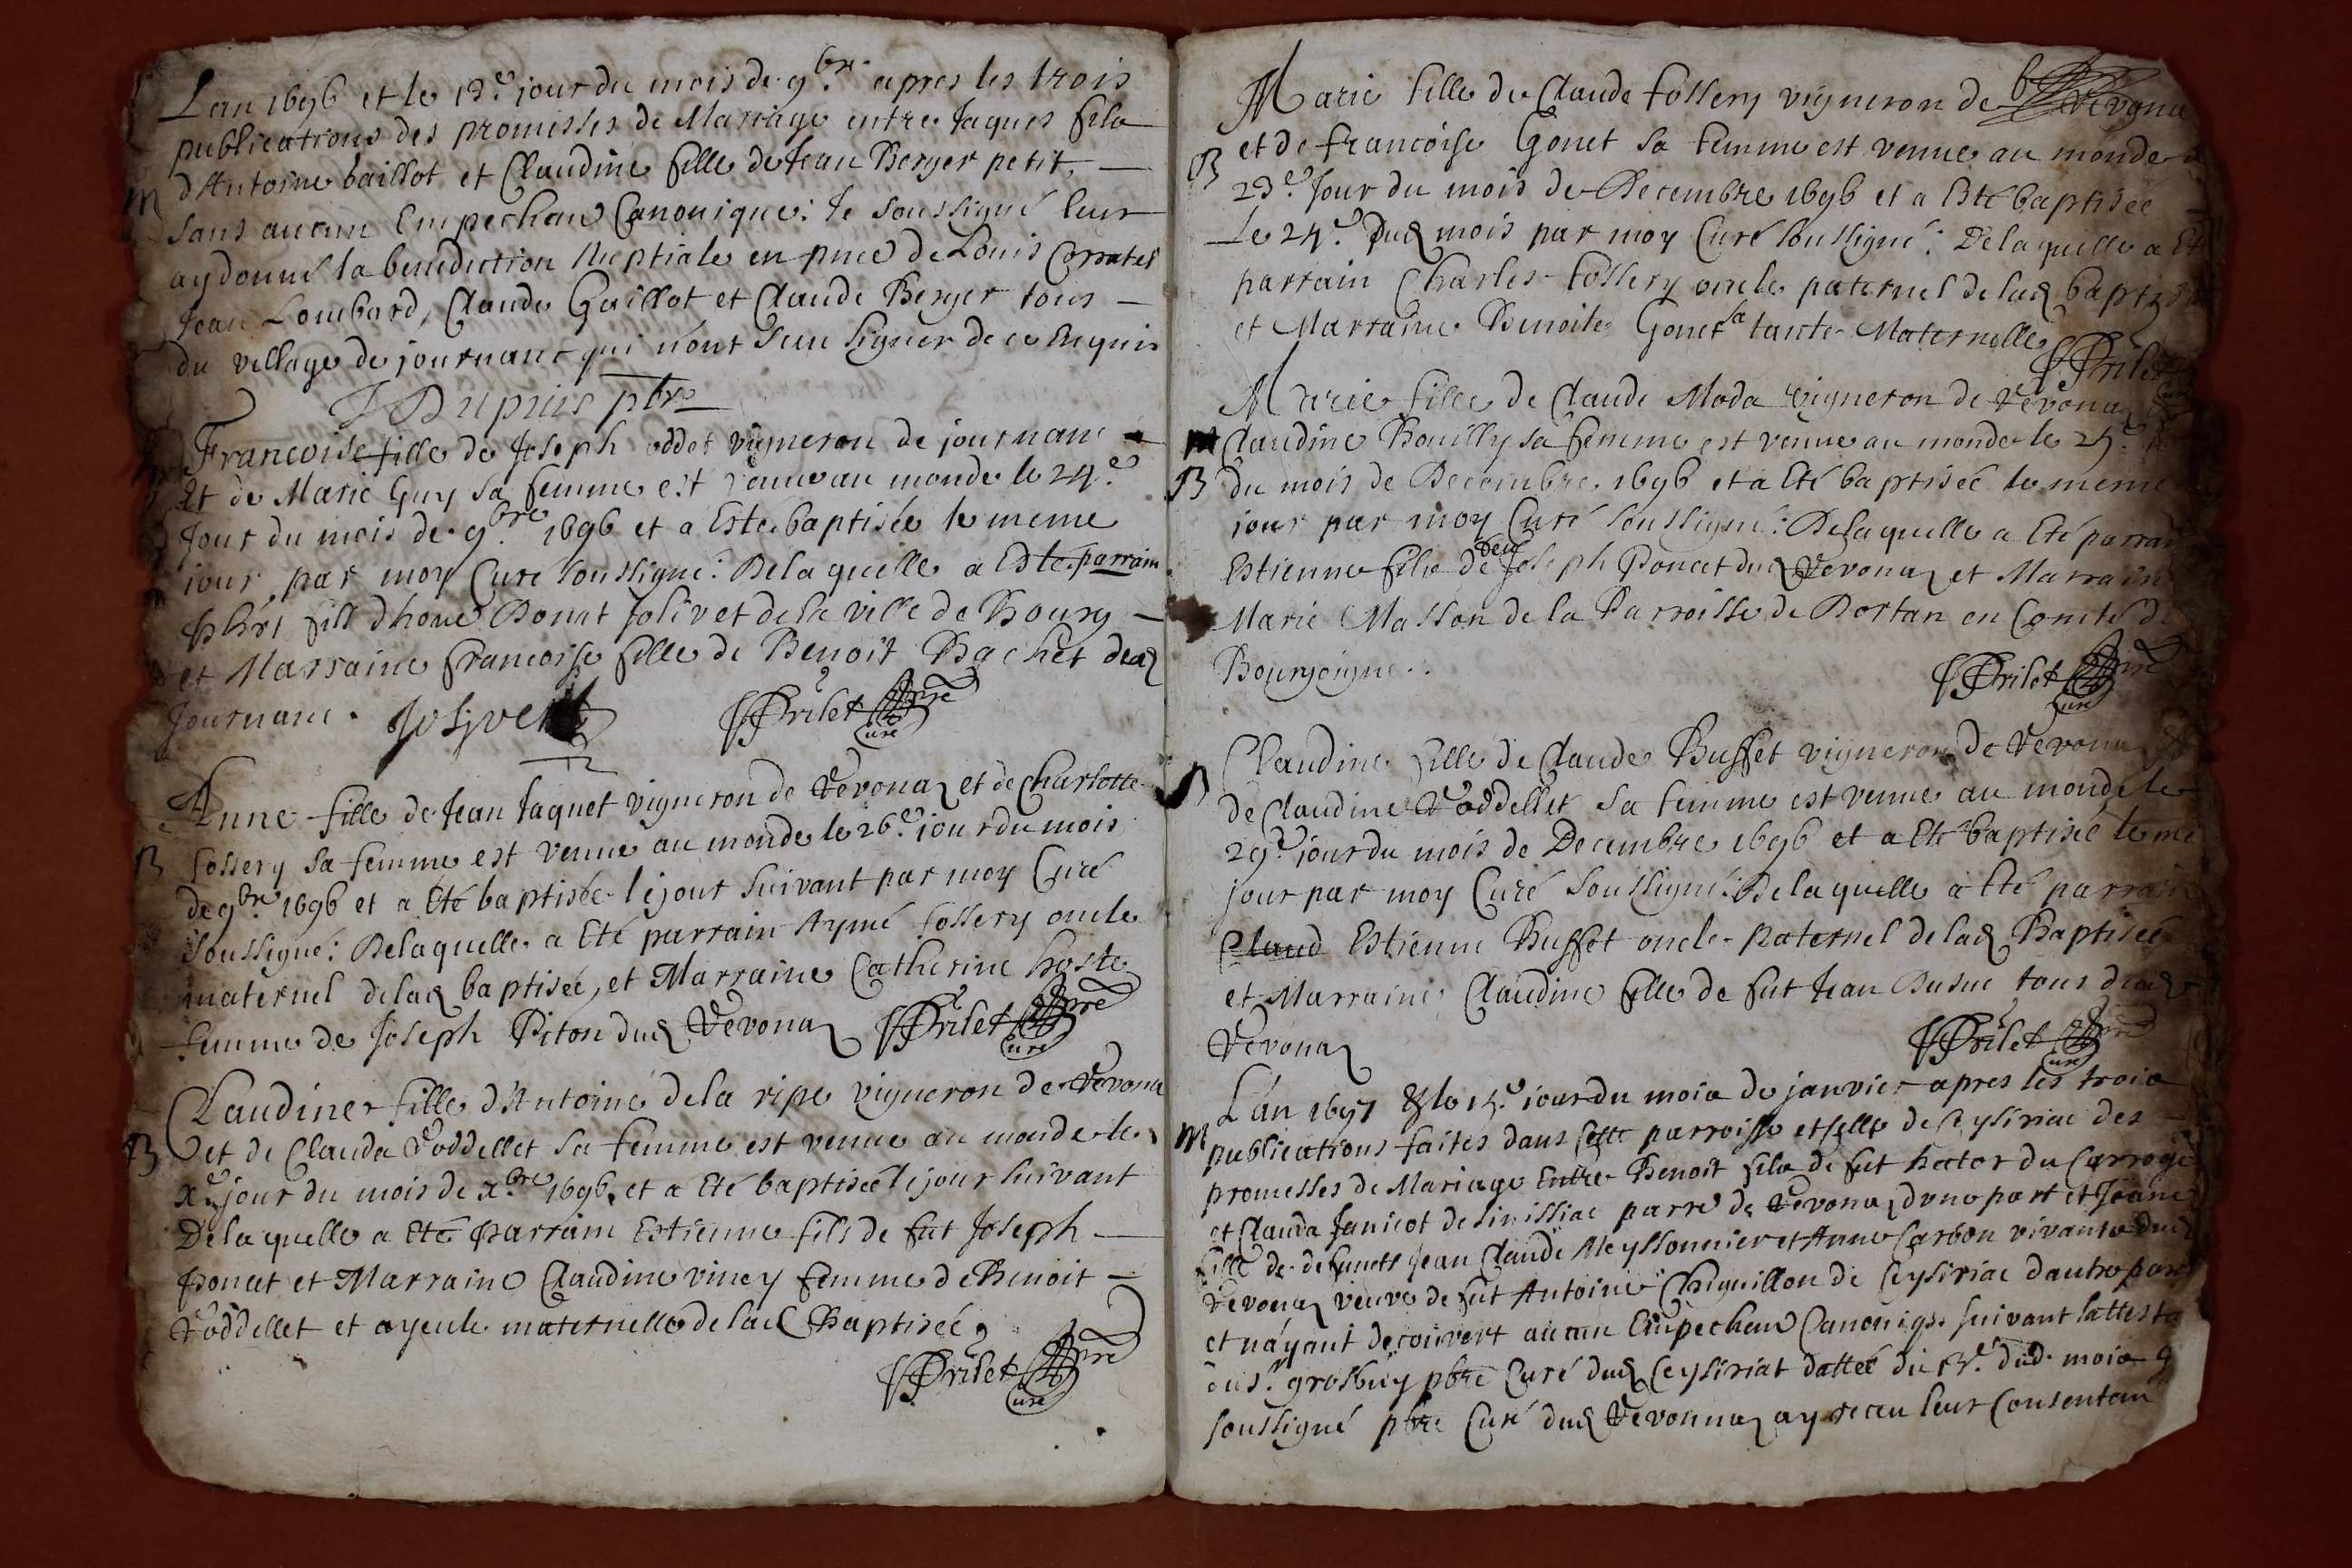 Lan 1696 et le 13.e jour du mois de 9.bre apres les trois
publications des promesses de Mariage entre Jaques fils
M
d'Antoine baillot et Claudine fille de Jean Berger petit,
sans aucun Empechem Canonique: Je soussigné leur
ay donné la benediction Nuptiale en pnce de Louis
Jean Lombard, Claude Gaillot et Claude Berger tous
du village de journanc qui n'ont sceu signer de ce Requis
Dupuis pbre
Francoise fille de Joseph oddet vigneron de journanc
Et de Marie Guy sa femme est venue au monde le 24.e
Jour du mois de 9.bre 1696 et a Este baptisée le meme
jour par moy Curé soussigné: De laquelle a Esté parrain
fils d'hone Donat Jolivet de la ville de Bourg
et Marraine francoise fille de Benoit Bachet dud
Journanc. Jolyvet Prilet pre
Curé
Anne fille de Jean Jaquet vigneron de Revonaz et de Charlotte
B
fossery sa femme est venue au monde le 26.e jour du mois
de 9.bre 1696 et a Eté baptisée le jour suivant par moy Curé
soussigné: De laquelle a Eté parrain Aymé fossery oncle
maternel de lad baptisée, et Marraine Catherine hoste
femme de Joseph Piton dud Revonaz Prilet pre
Curé
Claudine fille d'Antoine de la ripe vigneron de Revona
B
et de Clauda Voddellet sa femme est venue au monde le
X.e jour du mois de x.bre 1696 et a Eté baptisée le jour suivant
De laquelle a Eté parrain Estienne fils de fut Joseph
Poncet et Marraine Claudine viney femme de Benoit
Voddellet et ayeule maternelle de lad Baptisée,
Prilet pre
Curé
Marie fille de Claude fossery vigneron de Revona
et de francoise Gonet sa femme est venue au monde
B
23.e Jour du mois de Decembre 1696 et a Eté baptisée
Le 24.e dud mois par moy Curé soussigné: De laquelle a Eté
parrain Charles fossery oncle paternel de lad baptisée
et Marraine Benoite Gonet sa tante Maternelle
Prilet
Marie fille de Claude Moda vigneron de Revonaz
Claudine Bouilly sa femme est venue au monde le 25.e
B
du mois de Decembre 1696 et a Eté baptisée le meme
jour par moy Curé soussigné: De laquelle a Eté parrain
Estienne fils de feu Joseph Poncet dud Revonaz et Marraine
Marie Masson de la Parroisse de Dortan en Comté de
Bourgoigne.
Prilet pre
Curé
Claudine fille de Claude Buffet vigneron de Revonaz
B
de Claudine Voddellet sa femme est venue au monde le
29.e jour du mois de Decembre 1696 et a Eté baptisée le me
jour par moy Curé soussigné: De laquelle a Eté parrain
Claud Estienne Buffet oncle paternel de lad Baptisée
et Marraine Claudine fille de fut Jean tous dud
Revonaz
Prilet pre
Curé
L'an 1697 & le jour du mois de janvier apres les trois
M
publications faites dans Cette parroisse et celle de Ceysiriac des
promesses de Mariage Entre Benoit fils de fut hector du Carroge
et Clauda Janicot de sinissiac parre de Revonaz dune part et Jeane
fille de defuncts Jean Claude Meyssonnier et Anne Carbon vivants dud
Revonaz veuve de fut Antoine Chiquillon de Ceysiriac dautre part
et n'ayant decouvert aucun Empechem Canoniq. suivant lattesta
du s.r grosbuy pbre Curé dud Ceysiriat dattée du dud. mois
soussigné pbre Curé dud Revonnaz ay receu leur Consentem